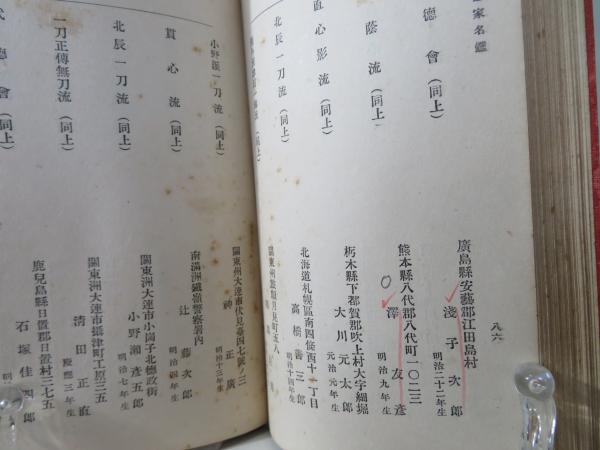 家名鑑
八六
德會(同上)
廣島縣安藝郡江田島村
淺子次郎
明治二十二年生
蔭流(同上)
熊本縣八代郡八代町一〇二三
澤友彥
明治九年生
直心影流(同上)
栃木縣下都賀郡吹上村大字細堀
大川元太郎
元治元年生
北辰一刀流(同上)
北海道札幌區南四條西十一丁目
高橋壽三郎
明治十四年生
(同上)
關東州旅順月見町五八
小野派一刀流(同上)
關東州大連市伏見臺四七號ノ三
神正廣
明治十三年生
貫心流(同上)
南滿洲鐵嶺警察署內
辻藤次郎
明治四年生
北辰一刀流(同上)
關東洲大連市小崗子北德政街
小野瀨彥五郎
明治七年生
一刀正傳無刀流(同上)
關東洲大連市攝津町工原三五
清田正直
慶應三年生
德會(同上)
鹿兒島縣日置郡日置村三七五
石塚佳四郎
明治二年生